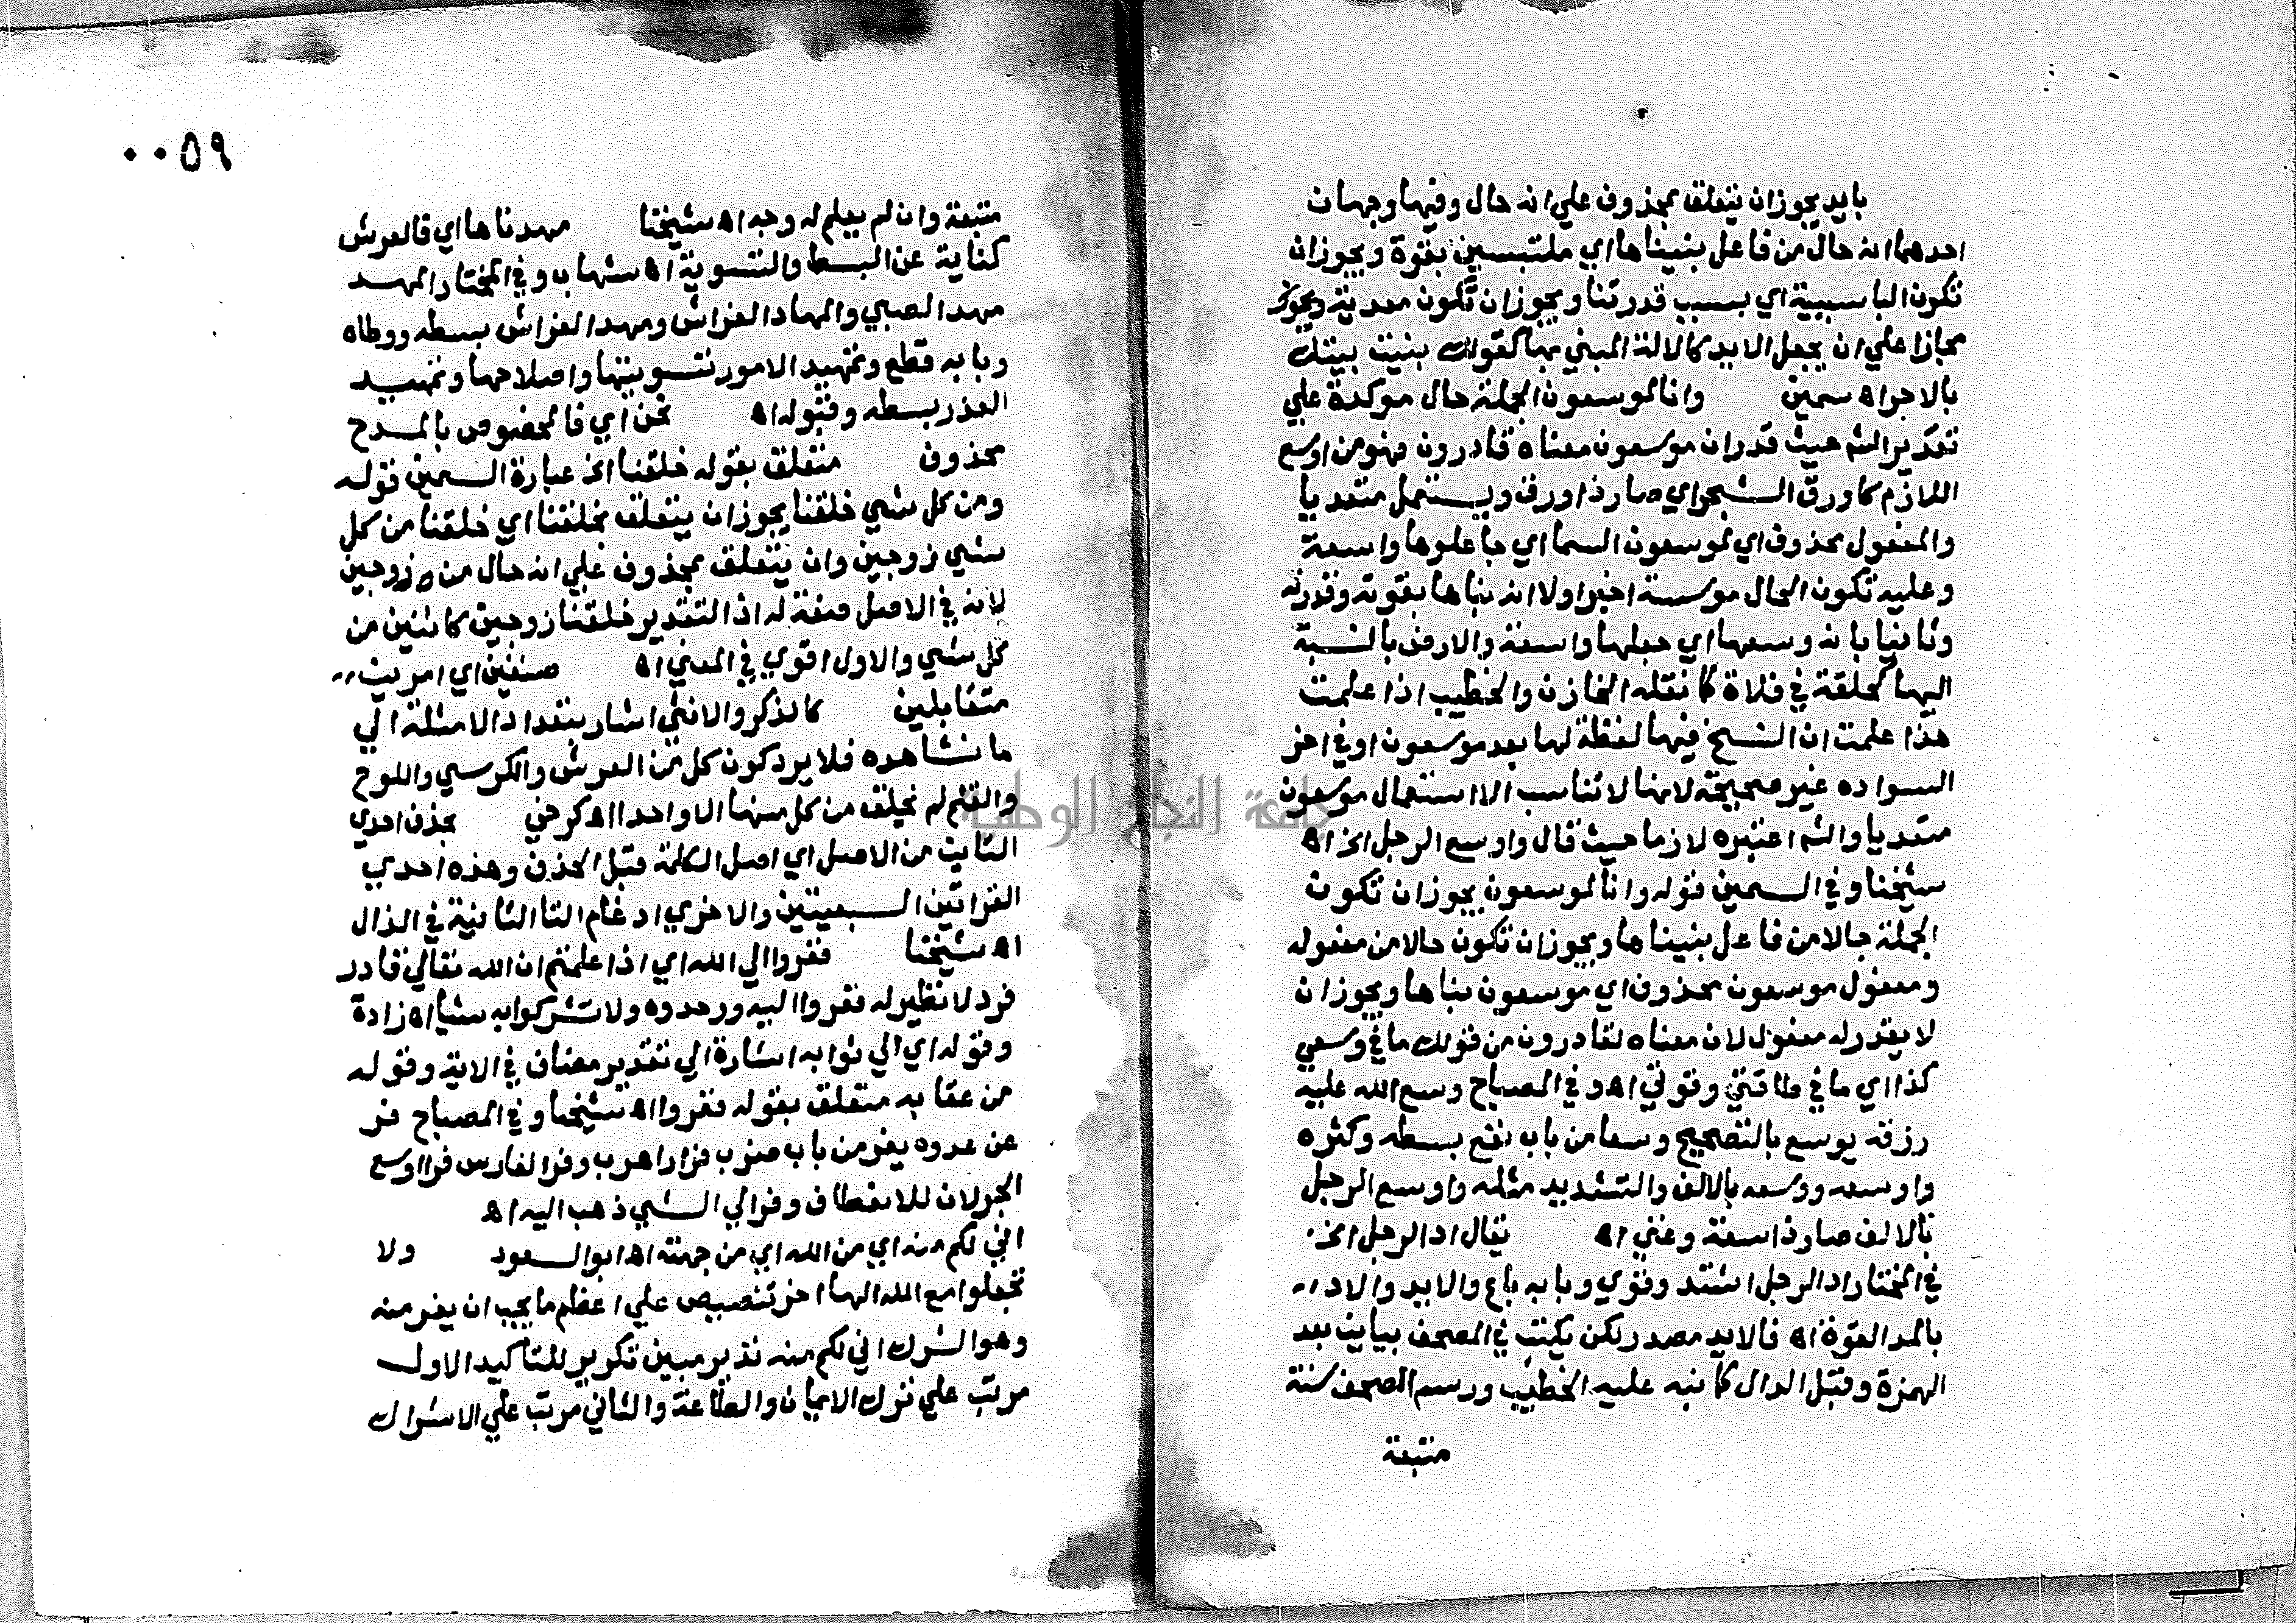 بايد يجوز ان يتعلق بمحذوف علي انه حال وفيها وجهان
احدهما انه حال من فاعل بنيناها اي ملتبسين بقوة ويجوز ان
تكون الباسببية اي بسبب قدرتنا ويجوز ان تكون معدية ويجوز
مجازا علي ان يجعل الايد كالالة المبني بها كقولك بنيت بيتك
بالاجر اه سمين وانا لموسعون الجملة حال موكدة علي
تقدير الشم حيث قدر ان موسعون معناه قادرون فهو من اوسع
اللازم كاورق الشجر اي صار ذا ورق ويستعمل متعديا
والمفعول محذوف اي لموسعون السما اي جاعلوها واسعة
وعليه تكون الحال موسسة اخبر اولا انه بناها بقوته وقدرته
وثانيا بانه وسعها اي جعلها واسعة والارض بالنسبة
اليها كحلقة في فلاة كا نقله الخازن والخطيب اذا علمت
هذا علمت ان النسخ فيها لفظة لها بعد موسعون او في اخر
السواده غير صحيحة لانها لا تناسب الا استعمال موسعون
متعديا والشم اعتبره لازما حيث قال واوسع الرجل الخ اه
شيخنا وفي السمين قوله وانا لموسعون يجوز ان تكون
الجملة حالا من فاعل بنيناها ويجوز ان تكون حالا من مفعوله
ومفعول موسعون محذوف اي موسعون بناها ويجوز ان
لا يقدر له مفعول لان معناه لقادرون من قولك ما في وسعي
كذا اي ما في طاقتي وقوتي اه وفي المصباح وسع الله عليه
رزقه يوسع بالتصحيح وسعا من باب نفع بسطه وكثره
واوسعه ووسعه بالالف والتشديد مثله واوسع الرجل
بالالف صار ذا سعة وغني اه يقال اد الرجل الخ
في المختار اد الرجل اشتد وقوي وبابه باع والايد والاد
بالمد القوة اه فالايد مصدر لكن يكتب في المصحف بيايين بعد
الهمزة وقبل الدال كا نبه عليه الخطيب ورسم المصحف سنة
متبعة
٠٠٥٩
متبعة وان لم يعلم له وجه اه شيخنا مهدناها اي فالفرش
كناية عن البسط والتسوية اه شهاب وفي المختار المهد
مهد الصبي والمهاد الفراش ومهد الفراش بسطه ووطاه
وبابه قطع وتمهيد الامور تسويتها واصلاحها وتمهيد
العذر بسطه وقبوله اه نحن اي فالمخصوص بالمدح
محذوف متعلق بقوله خلقنا الخ عبارة السمين قوله
ومن كل شي خلقنا يجوز ان يتعلق بخلقنا اي خلقنا من كل
شي زوجين وان يتعلق بمحذوف علي انه حال من زوجين
لانه في الاصل صفة له اذ التقدير خلقنا زوجين كائنين من
كل شي والاول اقوي في المعني اه صنفين اي امرين
متقابلين كالذكر والانثي اشار بتعداد الامثلة الي
ما نشاهده فلا يرد كون كل من العرش والكرسي واللوح
والقلم لم يخلق من كل منها الا واحد ااه كرخي بحذف احدي
التايين من الاصل اي اصل الكلمة قبل الحذف وهذه احدي
القراتين السبعيتين والاخري ادغام التا الثانية في الذال
اه شيخنا ففروا الي الله اي اذا علمتم ان الله تعالي قادر
فرد لا نظير له ففروا اليه ووحدوه ولا تشركوا به شيا اه زادة
وقوله اي الي ثوابه اشارة الي تقدير مضاف في الاية وقوله
من عقابه متعلق بقوله ففروا اه شيخنا وفي المصباح فر
عن عدوه يفر من باب ضرب فرارا هرب وفر الفارس فرا اوسع
الجولان للانعطاف وفر الي الشي ذهب اليه اه
اني لكم منه اي من الله اي من جهته اه ابو السعود ولا
تجعلوا مع الله الها اخر تنصيص علي اعظم ما يجب ان يفر منه
وهو الشرك اني لكم منه نذير مبين تكرير للتاكيد الاول
مرتب علي ترك الايمان والطاعة والثاني مرتب علي الاشراك
جامعة النجاح الوطنية